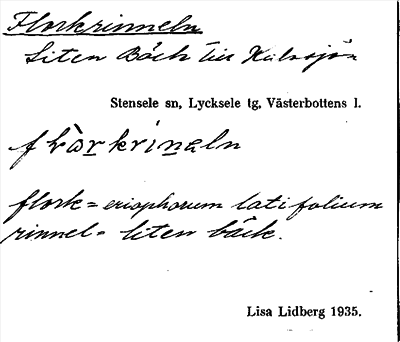 Florkrinneln
Liten Bäck till Kulsjön
Stensele sn, Lycksele tg, Västerbottens l.
flork = eriophorum latifolium
rinnel = liten bäck.
Lisa Lidberg 1935.